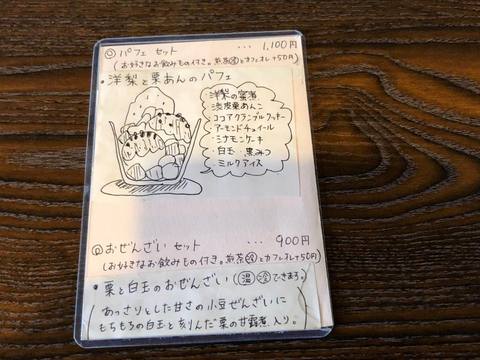 ◎ パフェ セット ・・・ 1,100円
(お好きなお飲みもの付き。煎茶㊄とカフェオレ+50円)
・洋梨と栗あんのパフェ
・洋梨の蜜煮
・渋皮栗あんこ
・ココアクランブルクッキー
・アーモンドチュイール
・シナモンケーキ
・白玉・黒みつ
・ミルクアイス
◎ おぜんざい セット ・・・ 900円
(お好きなお飲みもの付き。煎茶冷とカフェオレ+50円)
・栗と白玉のおぜんざい(温 冷 できます。)
あっさりとした甘さの小豆ぜんざいに
もちもちの白玉と刻んだ栗の甘露煮入り。